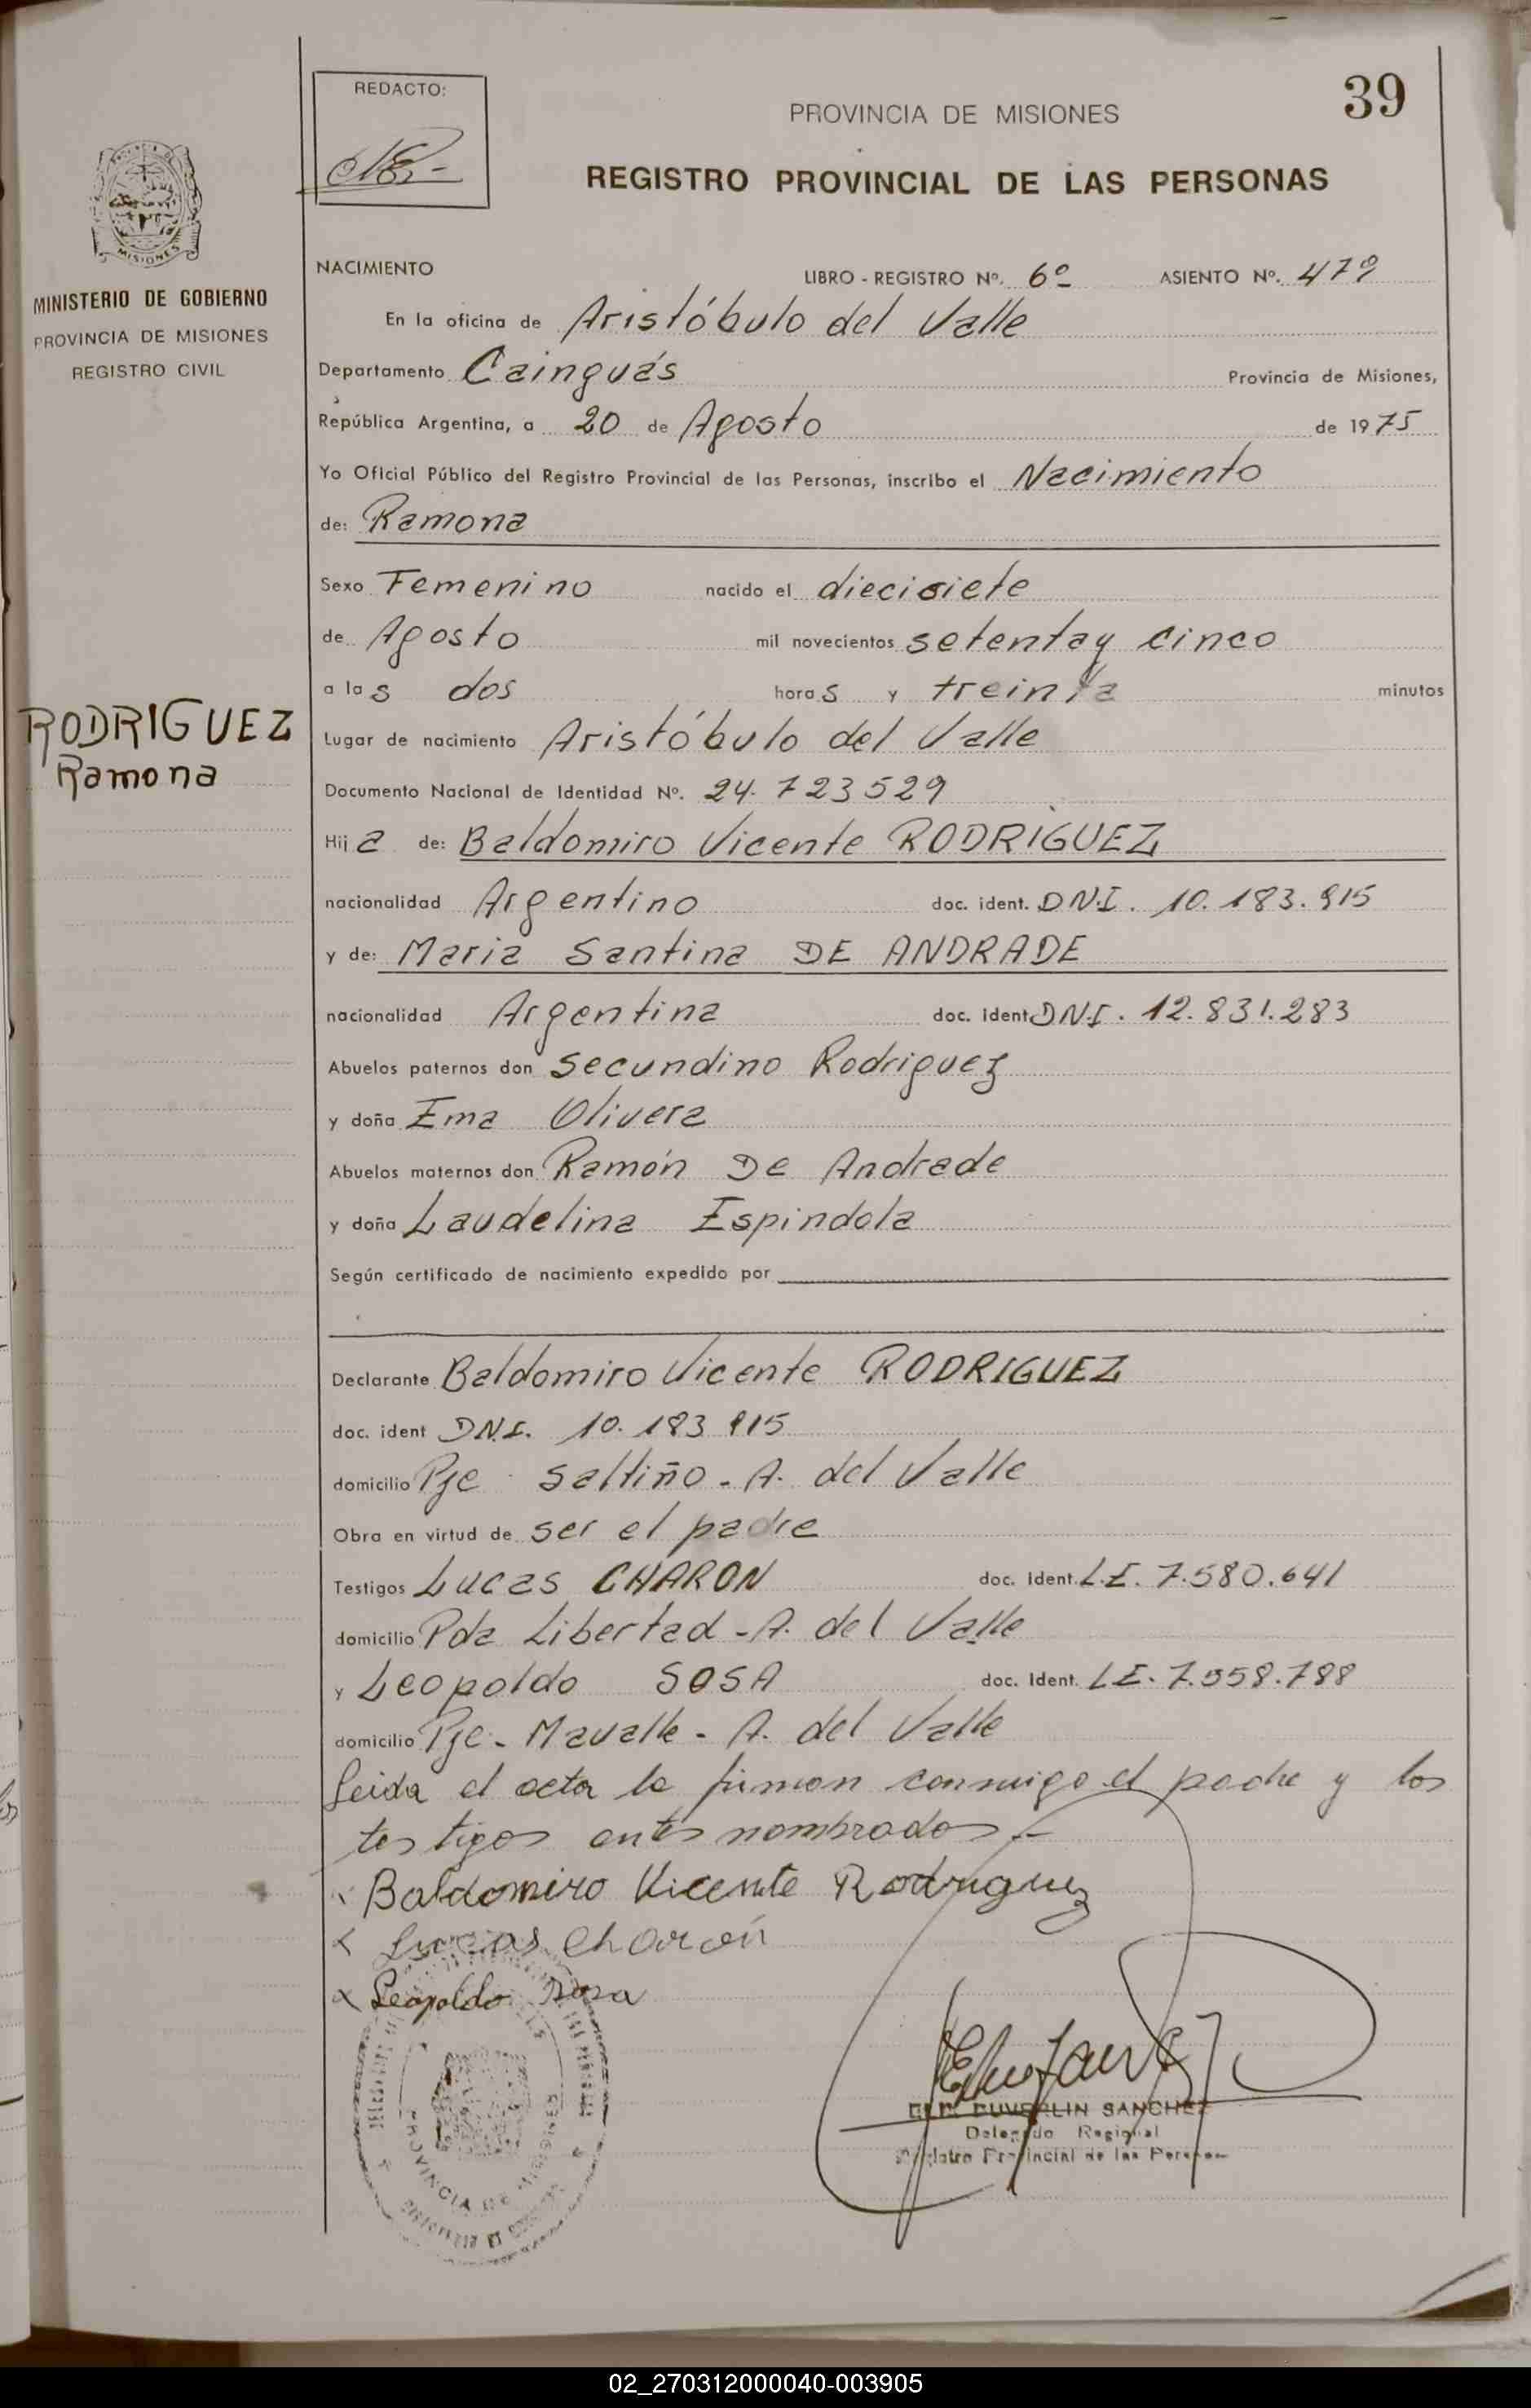 39
REDACTO:
PROVINCIA DE MISIONES
REGISTRO PROVINCIAL DE LAS PERSONAS
MISIONES
MINISTERIO DE GOBIERNO
PROVINCIA DE MISIONES
REGISTRO CIVIL
NACIMIENTO LIBRO - REGISTRO Nº. 6º ASIENTO Nº. 479
En la oficina de Aristóbulo del Valle
Departamento Cainguás Provincia de Misiones,
República Argentina, a 20 de Agosto de 1975
Yo Oficial Público del Registro Provincial de las Personas, inscribo el Nacimiento
de: Ramona
Sexo Femenino nacido el diecisiete
de Agosto mil novecientos setenta y cinco
a las dos horas y treinta minutos
RODRIGUEZ
Ramona
Lugar de nacimiento Aristóbulo del Valle
Documento Nacional de Identidad Nº. 24.723529
Hija de: Baldomiro Vicente RODRIGUEZ
nacionalidad Argentino doc. ident. D.N.I. 10.183.915
y de: Maria Santina DE ANDRADE
nacionalidad Argentina doc. ident D.N.I. 12.831.283
Abuelos paternos don Secundino Rodriguez
y doña Ema Olivera
Abuelos maternos don Ramón De Andrade
y doña Laudelina Espindola
Según certificado de nacimiento expedido por
Declarante Baldomiro Vicente RODRIGUEZ
doc. ident D.N.I. 10.183 915
domicilio Pje Saltiño - A. del Valle
Obra en virtud de ser el padre
Testigos Lucas CHARON doc. ident. L.E. 7.580.641
domicilio Pda Libertad - A. del Valle
y Leopoldo SOSA doc. Ident. L.E. 7.558.788
domicilio Pje - Mavalle - A. del Valle
Leida el acta la firman conmigo el padre y los
testigos antes nombrados.-
Baldomiro Vicente Rodriguez
Lucas Charón
Leopoldo Sosa
DUVERLIN SANCHEZ
Delegado Regional
Registro Provincial de las Personas
PROVINCIA DE MISIONES
02_270312000040-003905